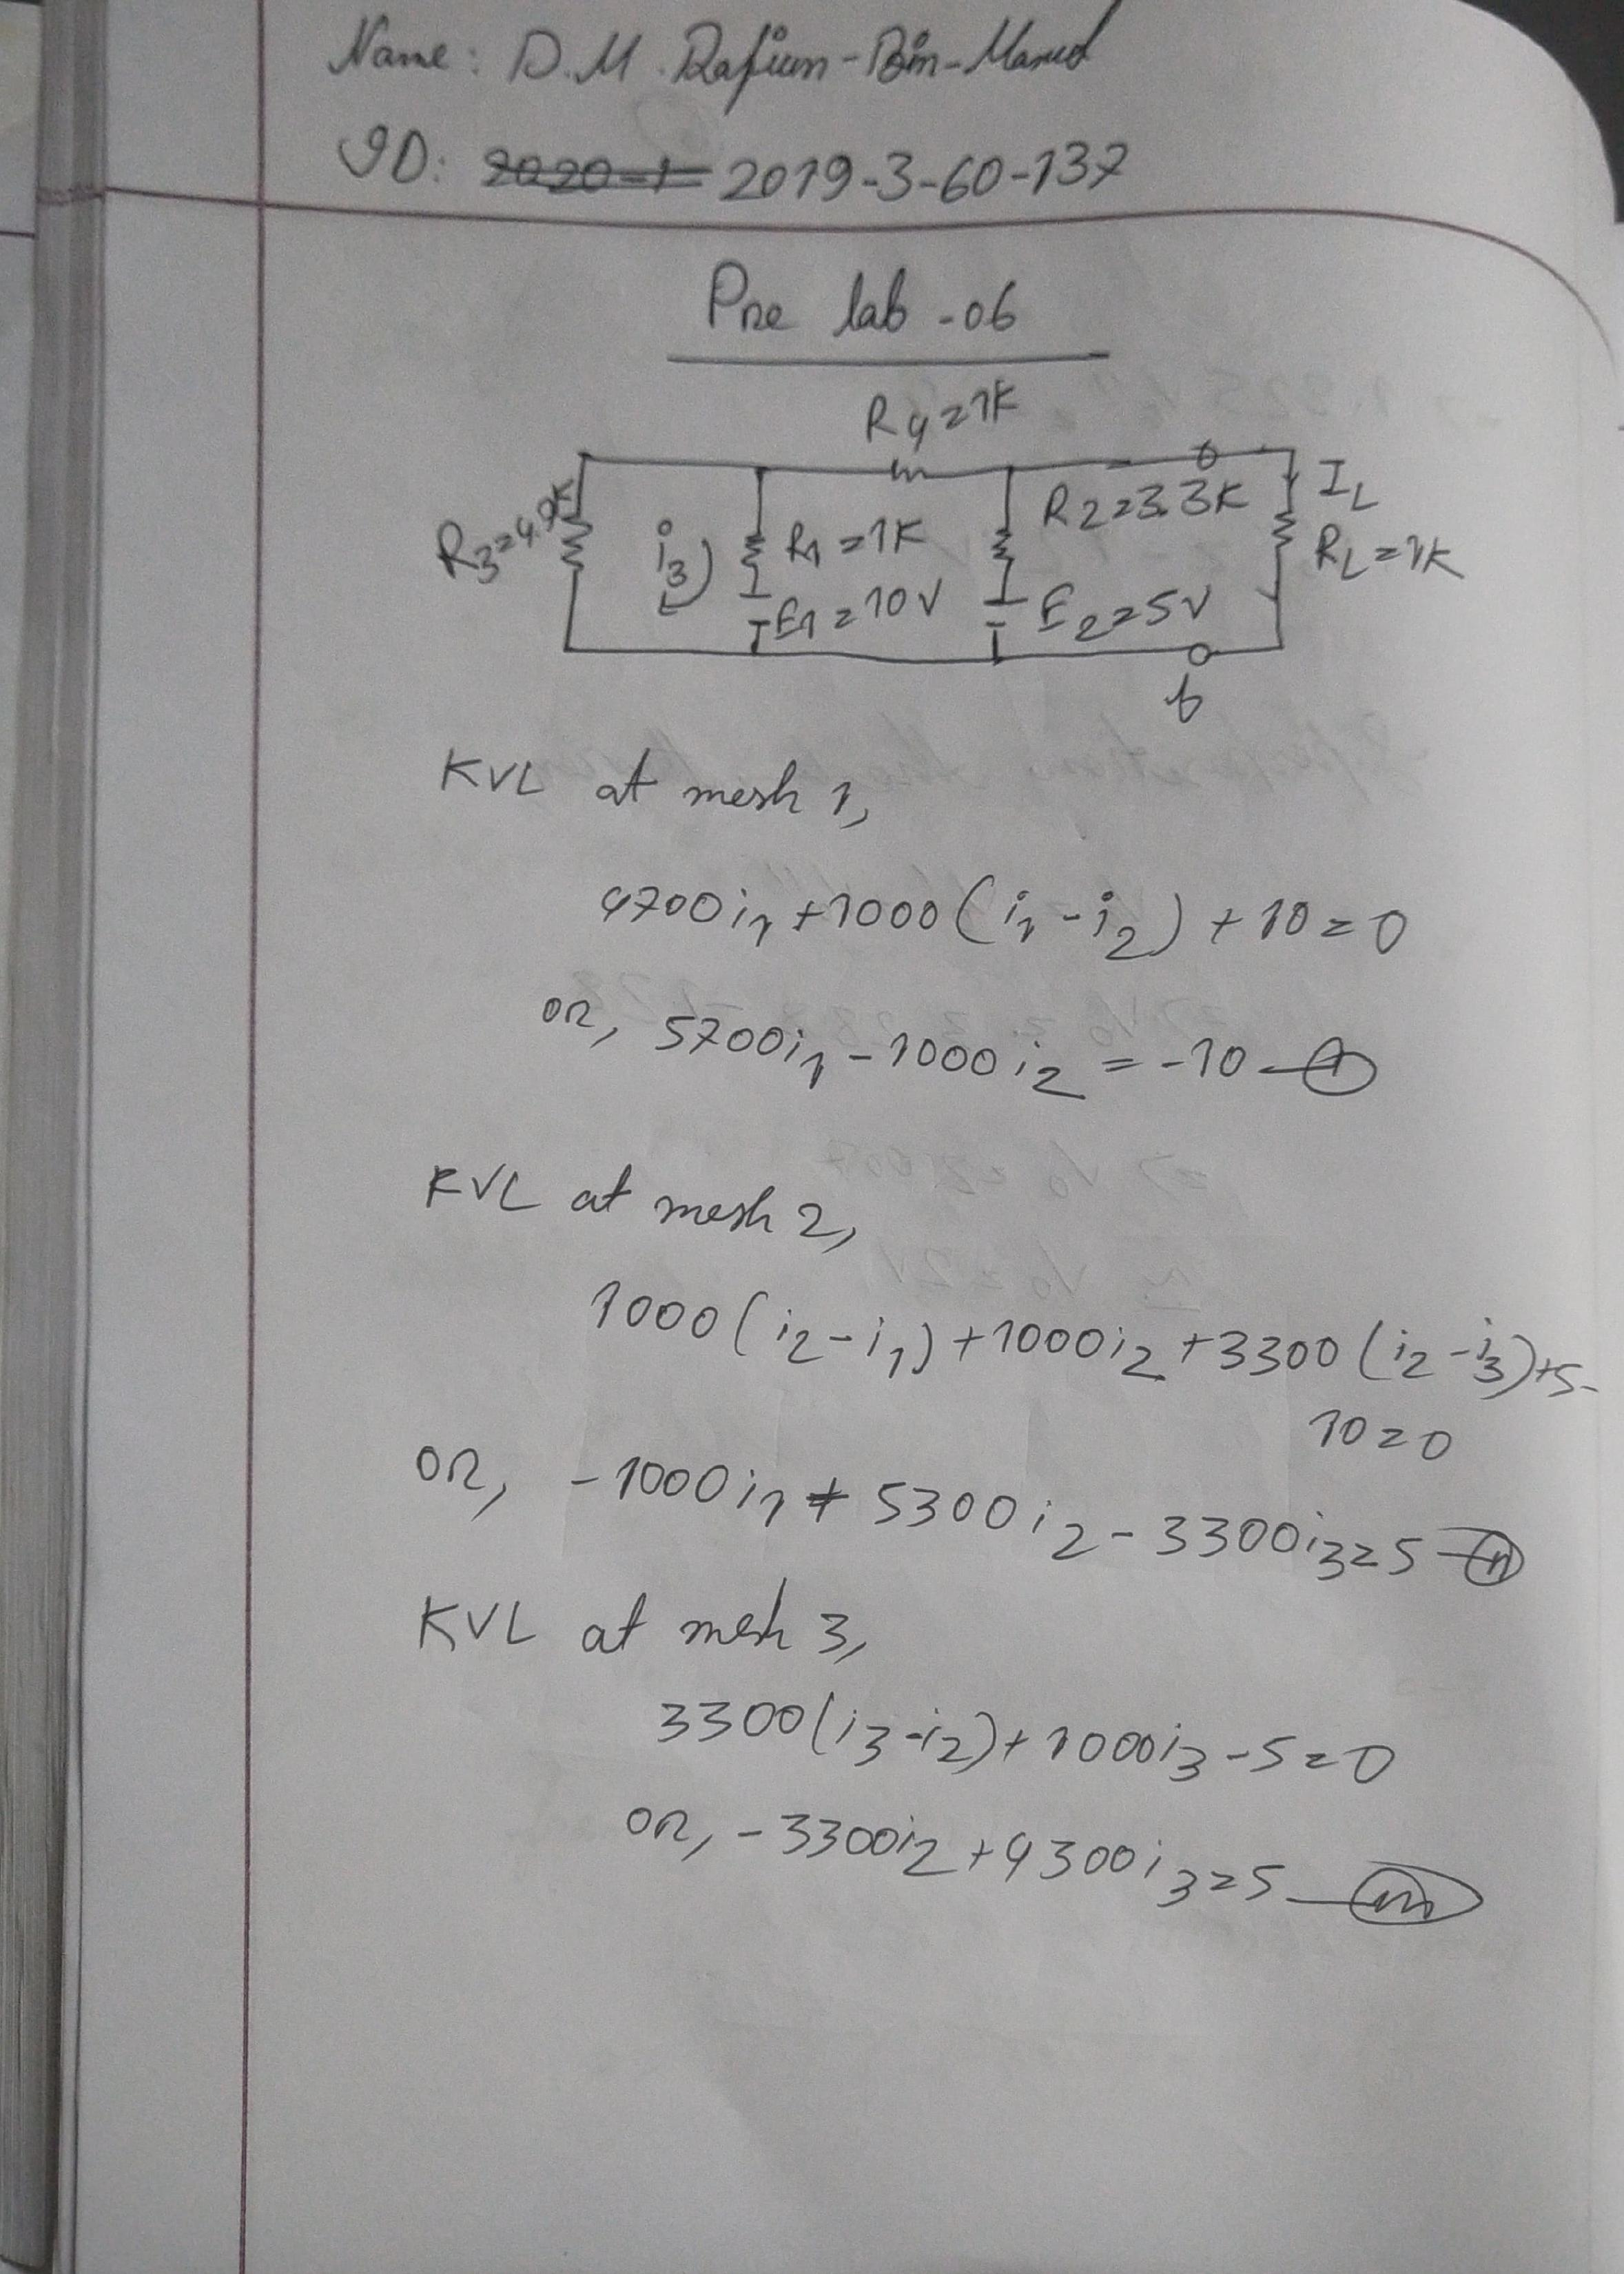 Name: D.M. Rafium-Bin-Marud
ID: 2020-1 2019-3-60-137
Pre lab -06
R4=1K
R3=4.7K
i3
R1=1K
E1=10V
R2=3.3K
E2=5V
IL
RL=1K
b
KVL at mesh 1,
4700i1+1000(i1-i2)+10=0
or, 5700i1-1000i2=-10 — (i)
KVL at mesh 2,
1000(i2-i1)+1000i2+3300(i2-i3)+5-
10=0
or, -1000i1+5300i2-3300i3=5 — (ii)
KVL at mesh 3,
3300(i3-i2)+1000i3-5=0
or, -3300i2+4300i3=5 — (iii)